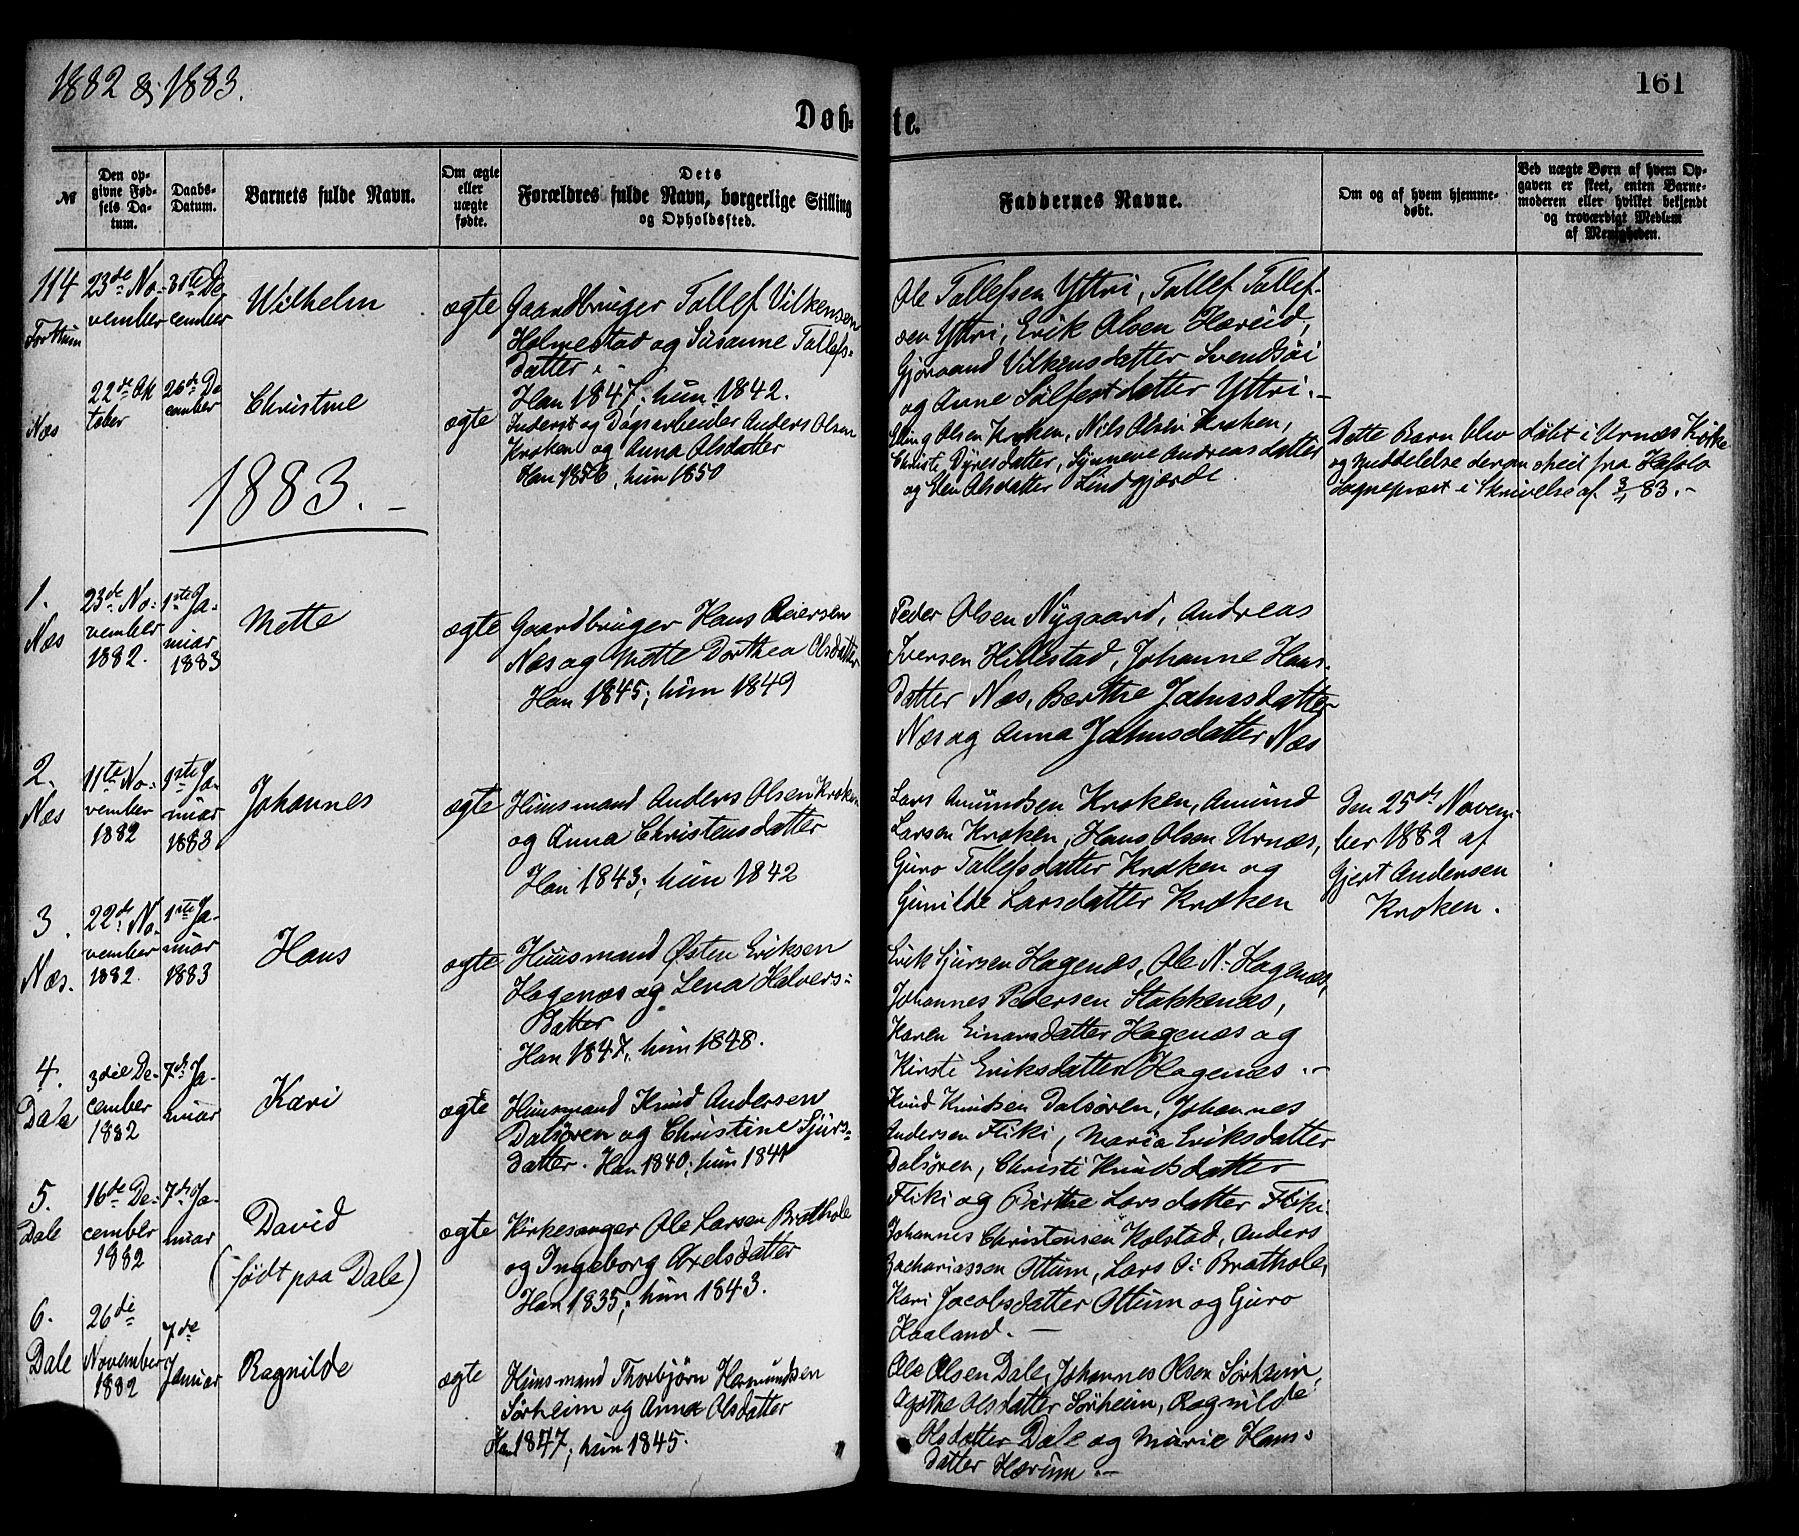 1882 & 1883.
161
Døb-
te.
№
Den op-
givne Fød-
sels Da-
tum.
Daabs-
Datum.
Barnets fulde Navn.
Om ægte
eller
uægte
fødte.
Dets
Forældres fulde Navn, borgerlige Stilling
og Opholdssted.
Faddernes Navne.
Om og af hvem hjemme-
døbt.
Ved uægte Børn af hvem Op-
gaven er skeet, enten Barne-
moderen eller hvilket bekjendt
og troværdigt Medlem
af Menigheden.
114
Forttum
23de No-
vember
31te De-
cember
Wilhelm
ægte
Gaardbruger Tollef Vilkensen
Holmestad og Susanne Tollefs-
datter.
Han 1847, hun 1842.
Ole Tollefsen Yttri, Tollef Tollef-
sen Yttri, Erik Olsen Hæreid,
Gjøraand Vilkensdatter Svendsøi
og Anne Sølfestdatter Yttri.-
Næs
22de Ok
tober
26de De
cember
Christine
ægte
Inderst og Dagsarbeider Anders Olsen
Kroken og Anna Olsdatter
Han 1856, hun 1850
Elling Olsen Kroken, Nils Olsen Kroken,
Christi Dyresdatter, Synneve Andreasdatter
og Elen Olsdatter Lindgjærde.
Dette Barn blev døbt i Urnæs Kirke
og Meddelelse derom skeet fra Hafslo
Sogneprest i Skrivelse af 3/1 83.-
1883.-
1.
Næs
23de No-
vember
1882.
1ste Ja-
nuar
1883
Mette
ægte
Gaardbruger Hans Reiersen
Næs og Mette Dorthea Olsdatter
Han 1845; hun 1849
Peder Olsen Nygaard, Andreas
Iversen Hillestad, Johanne Hans-
datter Næs, Berthe Jahnsdatter
Næs og Anna Jahnsdatter Næs
2.
Næs
11te No-
vember
1882
1ste Ja-
nuar
1883
Johannes
ægte
Huusmand Anders Olsen Kroken
og Anna Christensdatter
Han 1843; hun 1842
Lars Amundsen Kroken, Amund
Larsen Kroken, Hans Olsen Urnæs,
Guro Tollefsdatter Kroken og
Gunilde Larsdatter Kroken
Den 25de Novem-
ber 1882 af
Gjert Andersen
Kroken.
3.
Næs.
22de No-
vember
1882.
1ste Ja-
nuar
1883
Hans
ægte
Huusmand Østen Eriksen
Hagenæs og Lena Halvers-
datter
Han 1847, hun 1848.
Erik Sjursen Hagenæs, Ole N. Hagenæs,
Johannes Pedersen Stakkenæs,
Karen Einarsdatter Hagenæs og
Kirsti Eriksdatter Hagenæs.-
4.
Dale
3die De-
cember
1882
7de Ja-
nuar
Kari
ægte
Huusmand Knud Andersen
Dalsøren og Christine Sjurs-
datter. Han 1840; hun 1841
Knud Knudsen Dalsøren, Johannes
Andersen Fliki, Maria Eriksdatter
Dalsøren, Christi Knudsdatter
Fliki og Birthe Larsdatter Fliki.
5.
Dale
16de De-
cember
1882
7de Ja-
nuar
David
(født paa Dale)
ægte
Kirkesanger Ole Larsen Brathole
og Ingeborg Axelsdatter
Han 1835; hun 1843.
Johannes Christensen Kolstad, Anders
Zachariassen Ottum, Lars O. Brathole,
Kari Jacobsdatter Ottum og Guro
Haaland.-
6.
Dale
26de
November
1882
7de
Januar
Ragnilde
ægte
Huusmand Thorbjørn Hermundsen
Sørheim og Anna Olsdatter
Han 1847; hun 1845.
Ole Olsen Dale, Johannes Olsen Sørheim,
Agathe Olsdatter Sørheim, Ragnilde
Olsdatter Dale og Marie Hans-
datter Hærum.-